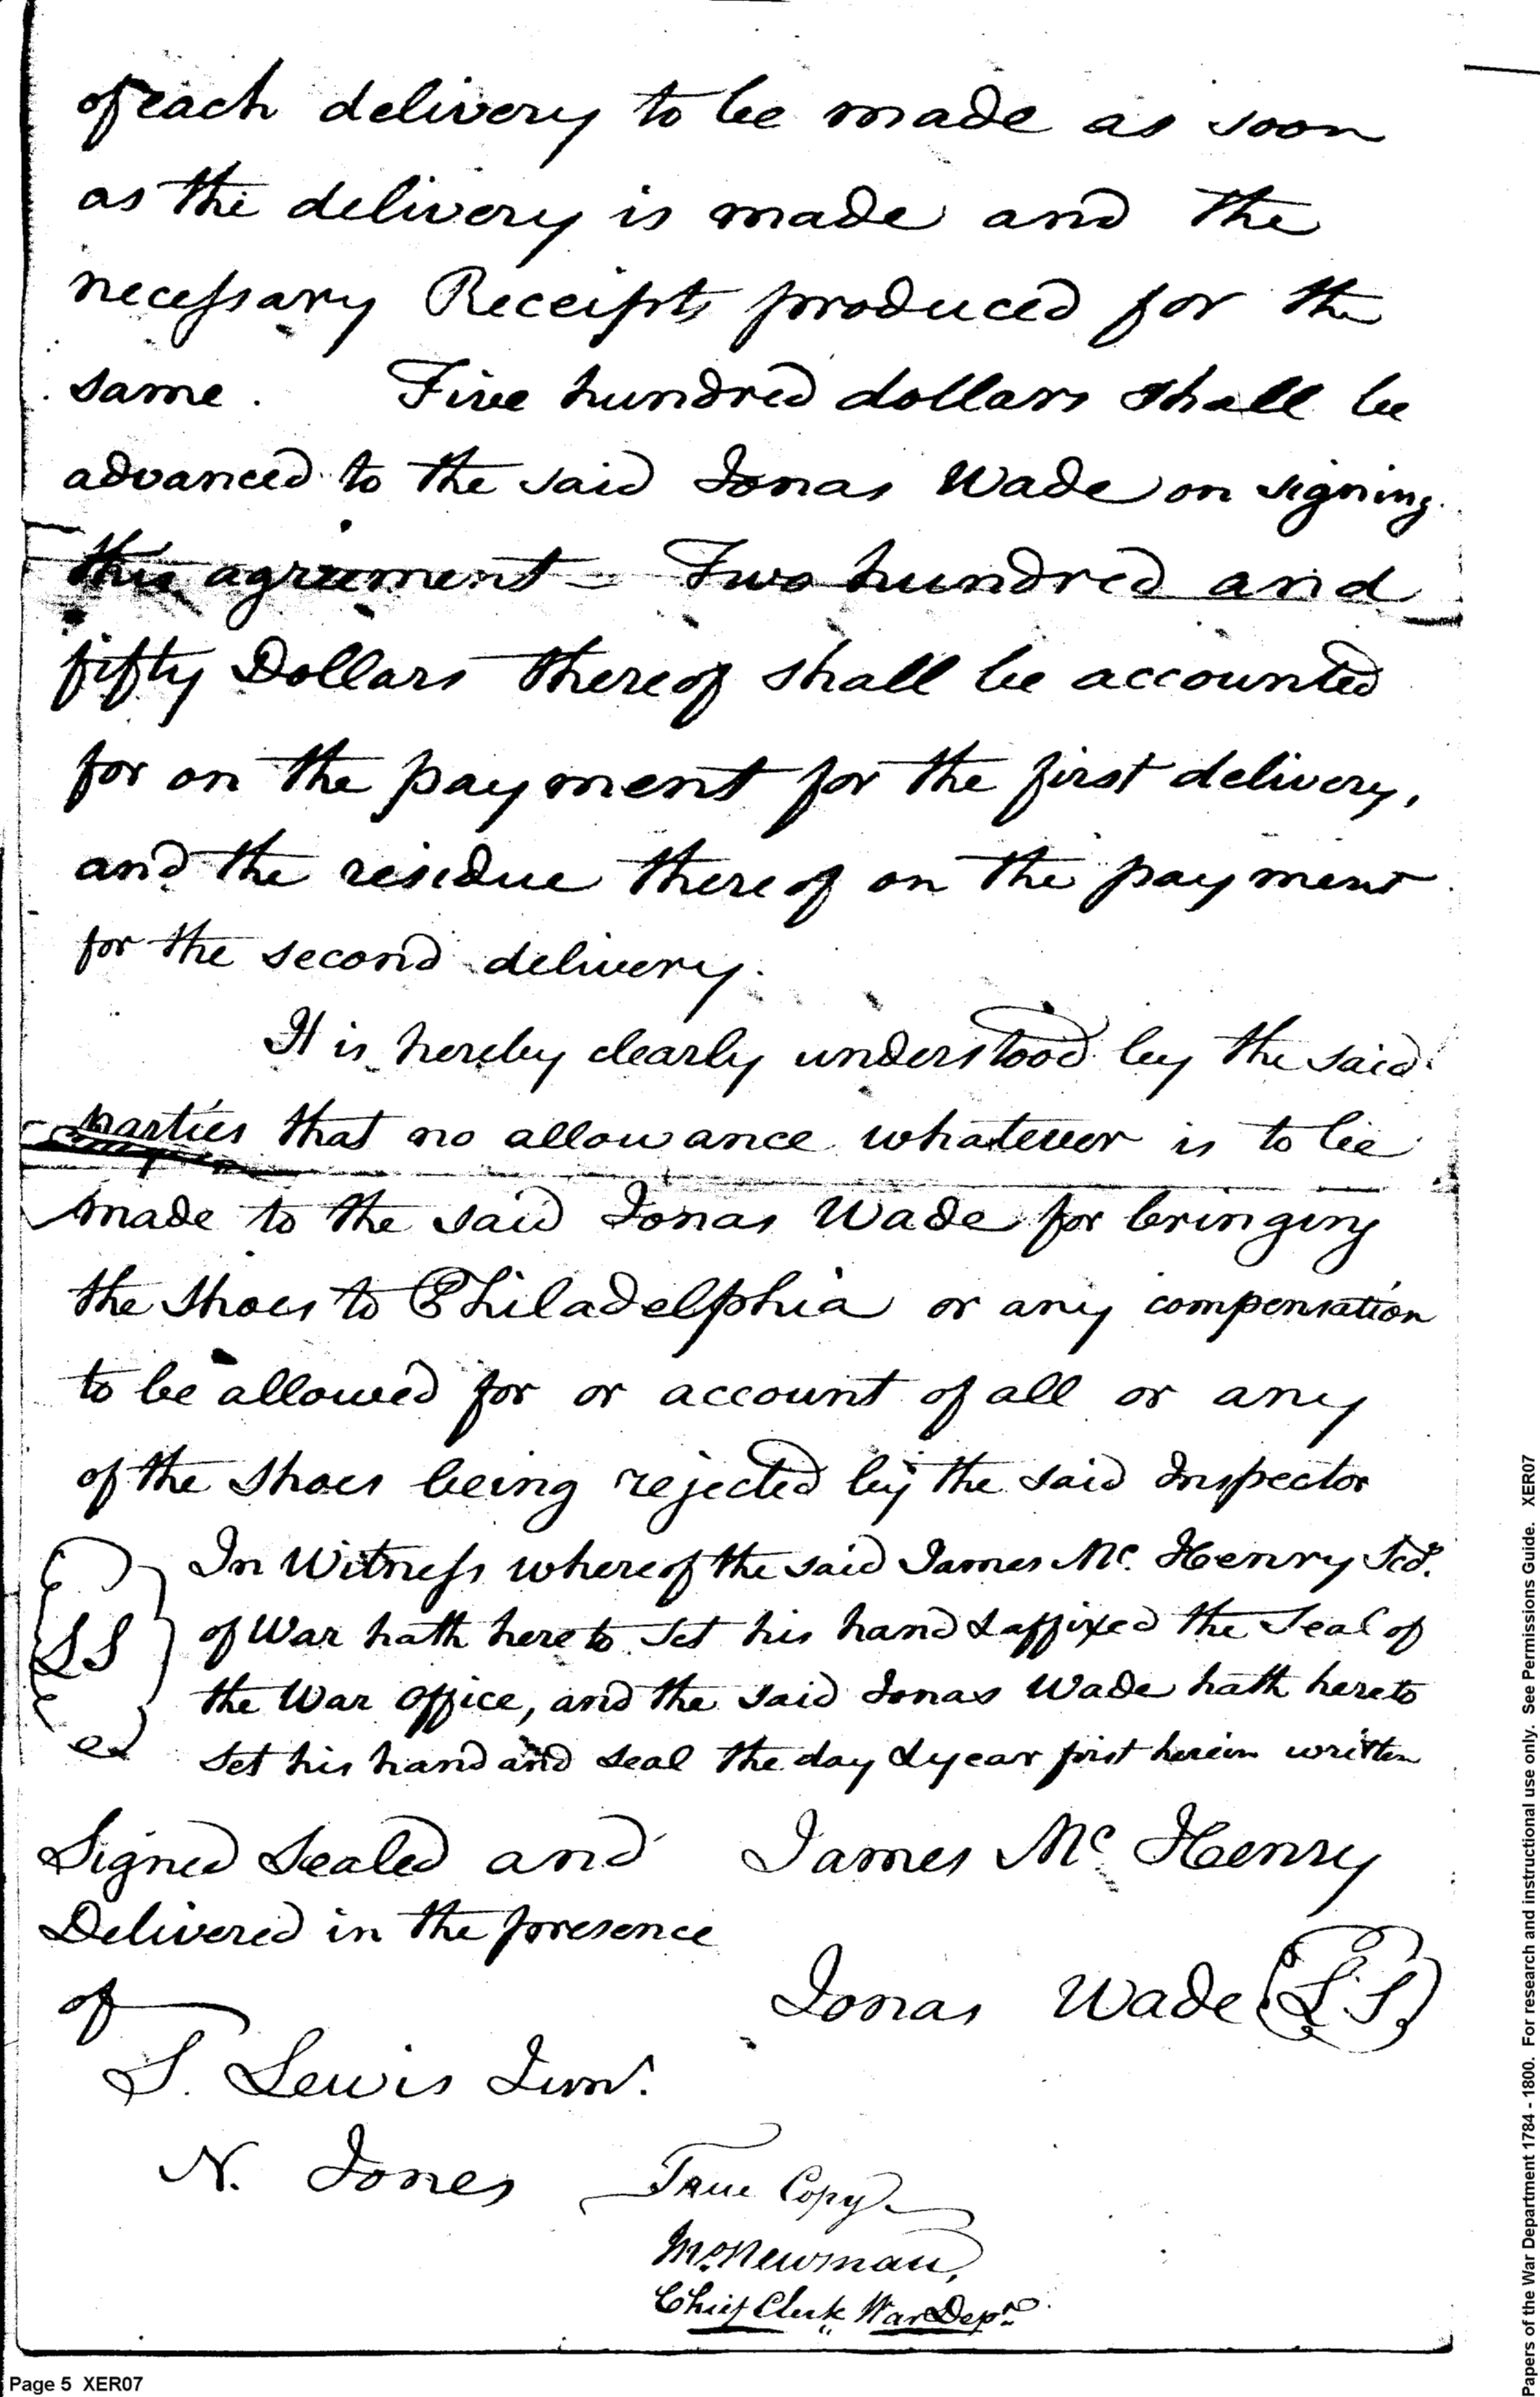 of each delivery to be made as soon
as the delivery is made and the
necessary Receipts produced for the
same. Five hundred dollars shall be
advanced to the said Jonas Wade on signing
this agreement – Two hundred and
fifty Dollars thereof shall be accounted
for on the payment for the first delivery,
and the residue thereof on the payment
for the second delivery.
It is hereby clearly understood by the said
parties that no allowance whatever is to be
made to the said Jonas Wade for bringing
the Shoes to Philadelphia or any compensation
to be allowed for or account of all or any
of the Shoes being rejected by the said Inspector
In Witness whereof the said James Mc. Henry Secy.
of War hath hereto set his hand & affixed the Seal of
LS
the War Office, and the said Jonas Wade hath hereto
set his hand and seal the day & year first herein written
Signed Sealed and James Mc Henry
Delivered in the presence
of Jonas Wade (L.S.)
S. Lewis Junr.
N. Jones
True Copy
Newman,
Chief Clerk War Dept.
Page 5 XER07
Papers of the War Department 1784 - 1800. For research and instructional use only. See Permissions Guide. XER07